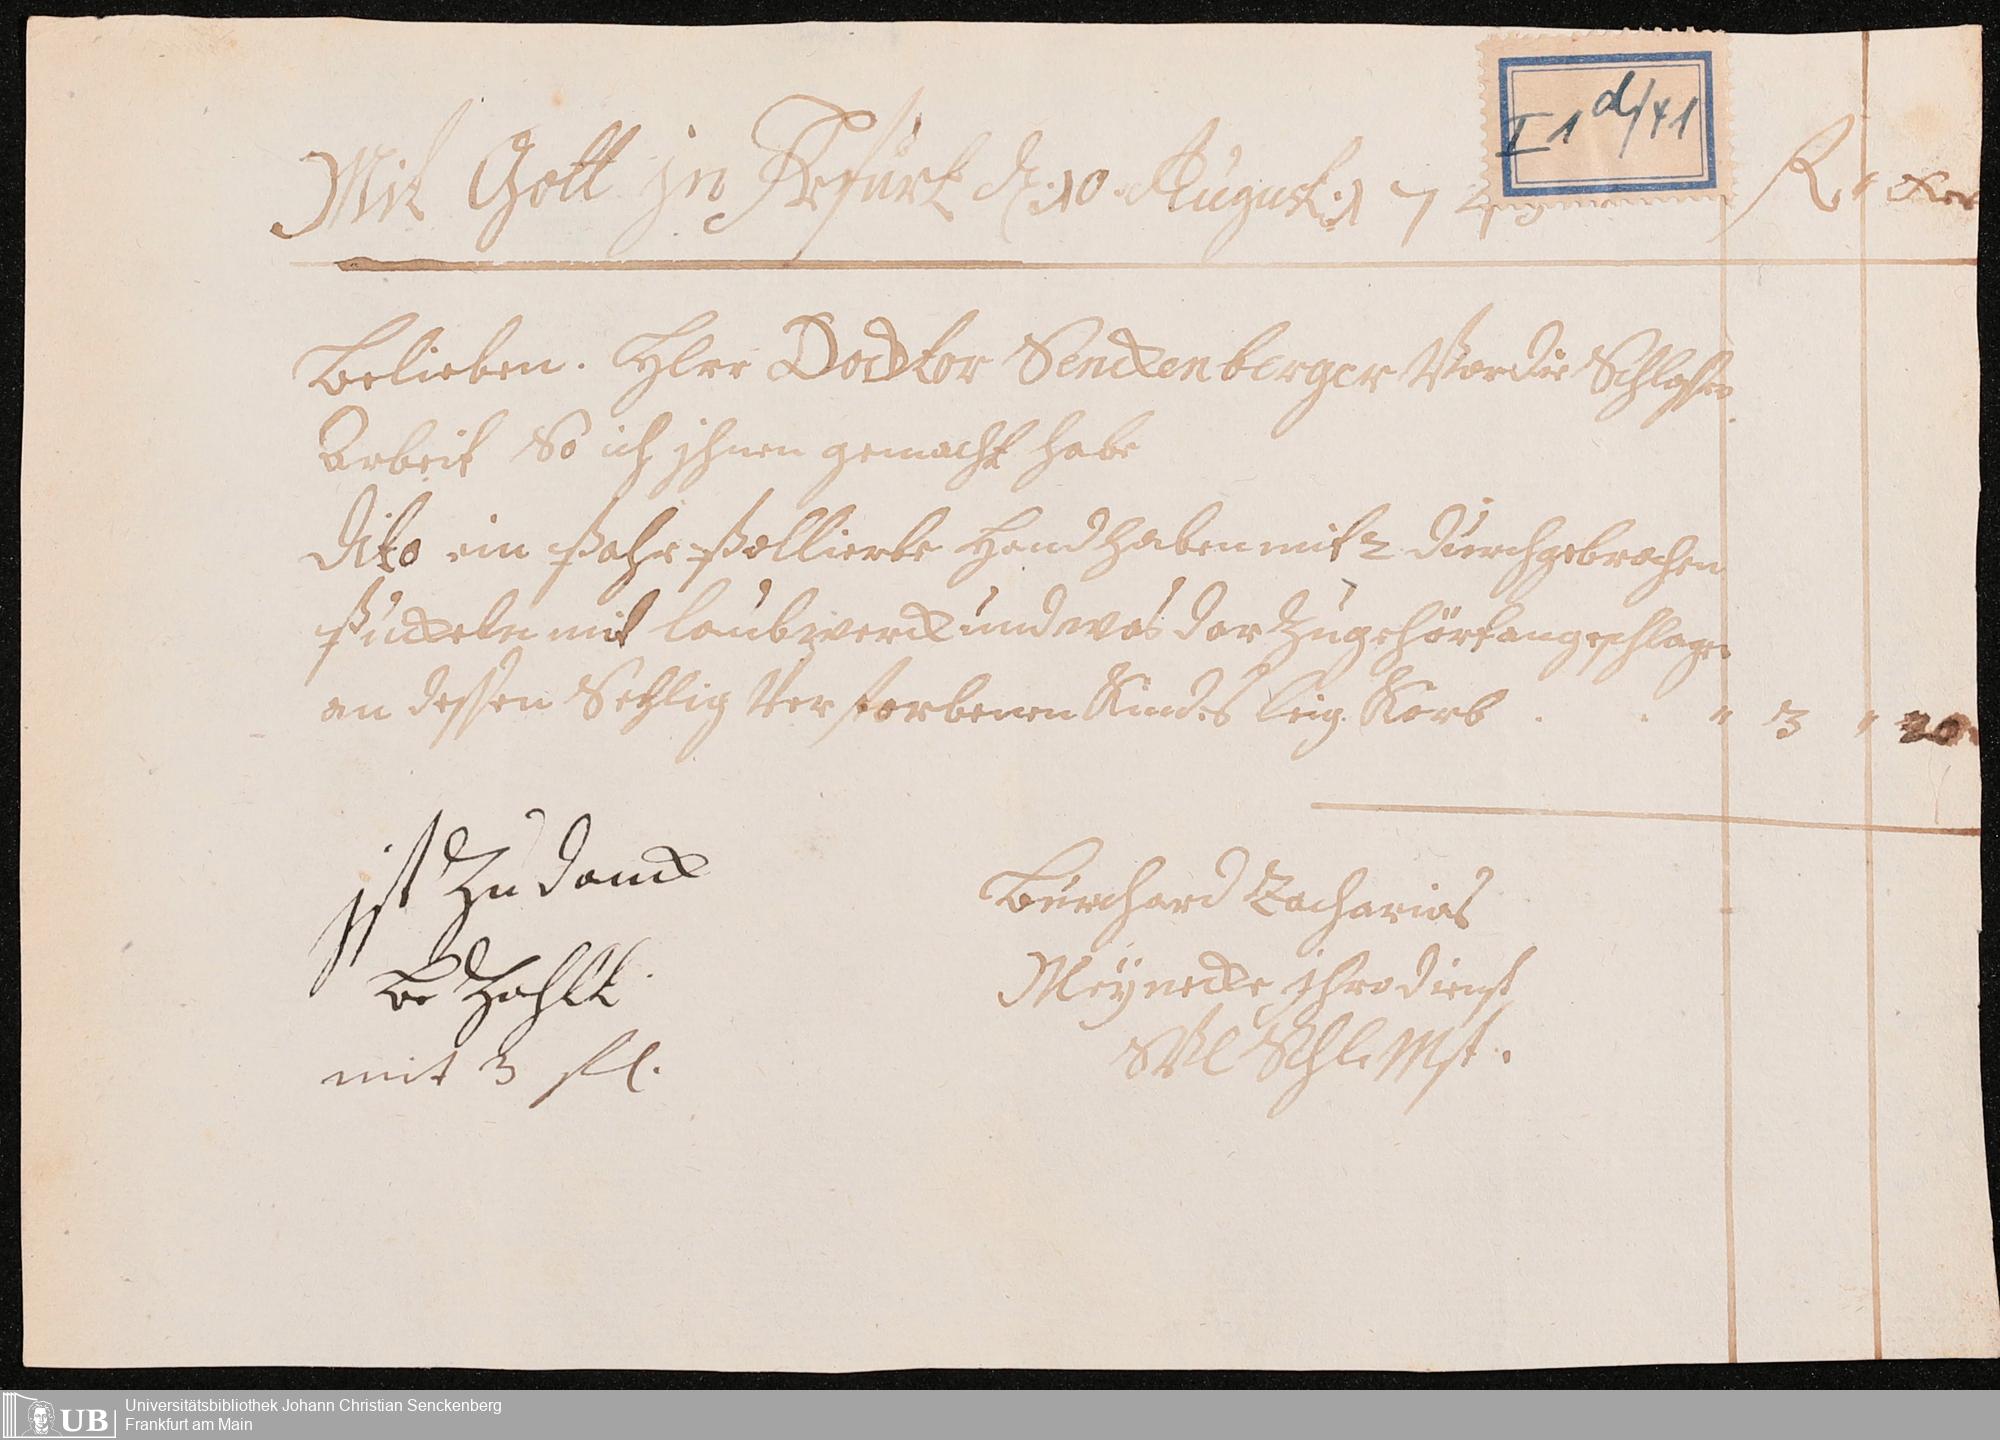 Mit Gott in Frfurt d. 10 August. 1 7 4 R.
I 1 d/41
Belieben. Herr Docktor Senckenberger Vor die Schlosser
Arbeit So ich ihnen gemacht habe
Dito ein Pahr Pollierte Handhaben mit 2 durchgebrochen
Puckeln mit laubwerck und was dar Zu gehört angeschlagen
an dessen Sehlig Verstorbenen Kindes leig. Korb . . " 3 " 20
ist Zu danck
Be Zahlt
mit 3 fl.
Burchard Zacharias
Meÿnecke ihro dienst
Schl. Mst.
UB
Universitätsbibliothek Johann Christian Senckenberg
Frankfurt am Main